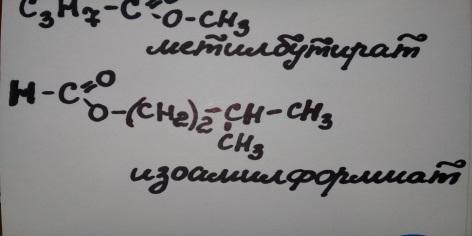 C₃H₇-C=O-O-CH₃
метилбутират
H-C=O
O-(CH₂)₂-CH-CH₃
CH₃
изоамилформиат